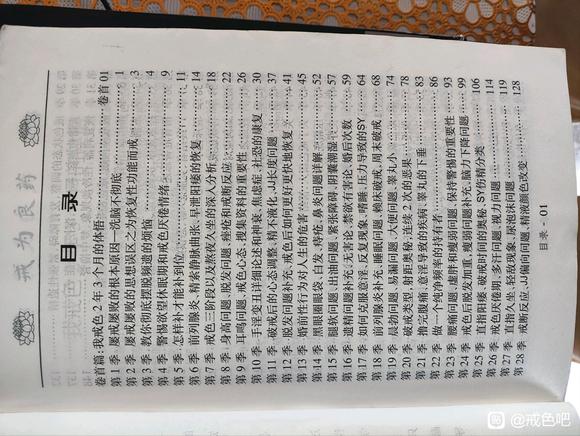 戒为良药
目录
卷首篇:我戒色2年3个月的体悟……卷首 01
第1季 屡戒屡败的根本原因—洗脑不彻底……1
第2季 屡戒屡败的思想误区之为恢复性功能而戒……3
第3季 教你彻底摆脱频遗的烦恼……4
第4季 警惕欲望休眠期和戒色厌倦情绪……9
第5季 怎样补才能补到位……11
第6季 前列腺炎、精索静脉曲张、早泄阳痿的恢复……14
第7季 戒色三阶段以及熬夜久坐的深入分析……18
第8季 身高问题、脱发问题、痤疮和戒断反应……22
第9季 耳鸣问题、戒色心态、搜集资料的重要性……26
第10季 手淫变丑详细论述和神衰、焦虑症、社恐的康复……30
第11季 破戒后的心态调整、精不液化、JJ长度问题……37
第12季 脱发问题补充、戒色后如何更好更快地恢复……41
第13季 婚前性行为对人生的危害……45
第14季 黑眼圈眼袋、白发、痔疮、鼻炎问题详解……52
第15季 腿软问题、出油问题、紧张碍、阴囊潮湿……57
第16季 遗精问题补充、无害论、禁欲有害论、婚后次数……59
第17季 如何克服意淫、反复现象、嗜睡、压力导致的SY……64
第18季 前列腺炎补充、睡眠问题、赖床破戒、周末破戒……68
第19季 晨勃问题、易漏问题、大便问题、睾丸小……74
第20季 破戒类型、射距奥秘、连续2次的恶果……78
第21季 撸完腹痛、意淫导致的疾病、睾丸的下垂……83
第22季 做一个纯净频率的持有者……86
第23季 腰椎问题、虚胖和瘦弱问题、保持警惕的重要性……93
第24季 戒色后脱发加重、瘦弱问题补充、脑力下降问题……99
第25季 直指阳痿、破戒时间的奥秘、SY伤精分类……106
第26季 戒色厌倦期、多汗问题、视力问题……114
第27季 直指久坐、轻敌现象、尿浊问题……119
第28季 戒断反应、JJ偏向问题、精液颜色改变……128
目录 - 01
@戒色吧